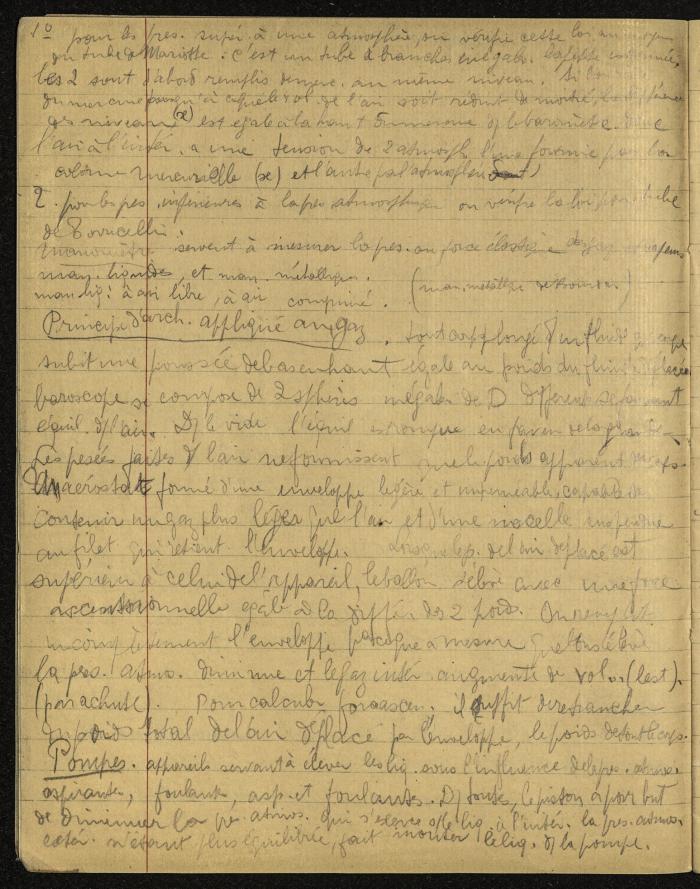 1° pour les pres. supér. à une atmosphère, on vérifie cette loi au moyen
du tube de Mariotte : c'est un tube à branches inégales. la petite est fermée,
les 2 sont d'abord remplis de merc. au même niveau. Si l'on
du mercure jusqu'à ce que le vol. de l'air soit réduit de moitié, la différence
des niveaux (x) est égale à la haut. du mercure ds le baromètre. donc
l'air à l'intér. a une tension de 2 atmosph. l'une fournie par la
colonne mercurielle (x) et l'autre par l'atmosphère
2. pour les pres. inférieures à la pres. atmosphérique on vérifie la loi par tube
de Torricelli.
Manomètre servent à mesurer la pres. ou force élastique des gaz
man. liquides, et man. métalliques.
man. liq. : à air libre, à air comprimé. (man. métallique de Bourdon)
Principe d'arch. appliqué aux gaz. tout corps plongé ds un fluide
subit une poussée de bas en haut égale au poids du fluide déplacé
baroscope se compose de 2 sphères inégales de D différents se faisant
équil. ds l'air. Ds le vide l'équil. est rompu en faveur de la grande.
Les pesées faites ds l'air ne fournissent que le poids apparent des corps.
Un aérostat formé d'une enveloppe légère et imperméable, capable de
contenir un gaz plus léger que l'air et d'une nacelle suspendue
au filet qui retient l'enveloppe. Lorsque le p. de l'air déplacé est
supérieur à celui de l'appareil, le ballon s'élève avec une force
ascensionnelle égale à la différ. des 2 poids. On remplit
incomplètement l'enveloppe parce que à mesure que l'on s'élève
la pres. atmos. diminue et le gaz intér. augmente de vol. (lest).
(parachute). Pour calculer force ascen. il suffit de retrancher
du poids total de l'air déplacé par l'enveloppe, le poids de tout le corps.
Pompes. appareils servant à élever les liq. sous l'influence de la pres. atmos.
aspirantes, foulantes, asp. et foulantes. Ds toutes, le piston a pour but
de diminuer la pre. atmos. qui s'exerce s/ le liq. à l'intér. la pres. atmos.
extér. n'étant plus équilibrée, fait monter le liq. ds la pompe.